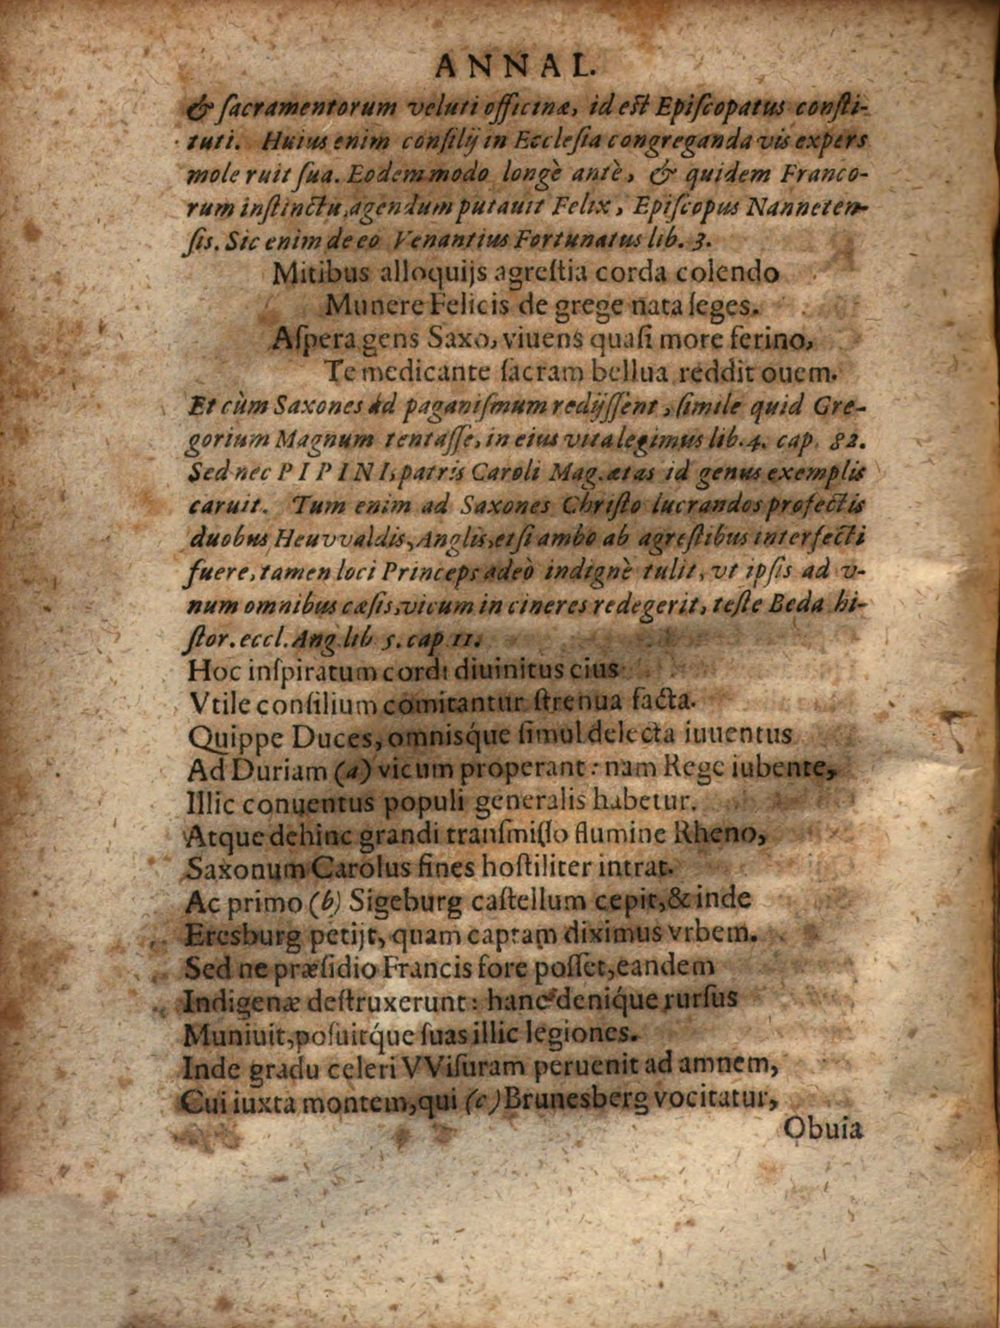 ANNAL.
& ſacramentorum veluti officinæ, id est Epiſcopatus conſti-
tuti. Huius enim conſilij in Eccleſia congreganda vis expers
mole ruit ſua. Eodem modo longè antè, & quidem Franco-
rum inſtinctu, agendum putauit Felix, Epiſcopus Nanneten-
ſis. Sic enim de eo Venantius Fortunatus lib. 3.
Mitibus alloquijs agreſtia corda colendo
Munere Felicis de grege nata ſeges.
Aſpera gens Saxo, viuens quaſi more ferino,
Te medicante ſacram bellua reddit ouem.
Et cùm Saxones ad paganiſmum redijſſent, ſimile quid Gre-
gorium Magnum tentaſſe, in eius vita legimus lib. 4. cap. 82.
Sed nec PIPINI, patris Caroli Mag. ætas id genus exemplis
caruit. Tum enim ad Saxones Chriſto lucrandos profectis
duobus Heuvvaldis, Anglis, etſi ambo ab agreſtibus interfecti
fuere, tamen loci Princeps adeò indignè tulit, vt ipſis ad v-
num omnibus cæſis, vicum in cineres redegerit, teſte Beda hi-
ſtor. eccl. Ang. lib 5. cap 11.
Hoc inſpiratum cordi diuinitus eius
Vtile conſilium comitantur ſtrenua facta.
Quippe Duces, omnisq́ue ſimul delecta iuuentus
Ad Duriam (a) vicum properant: nam Rege iubente,
Illic conuentus populi generalis habetur.
Atque dehinc grandi tranſmiſſo flumine Rheno,
Saxonum Carolus fines hoſtiliter intrat.
Ac primo (b) Sigeburg caſtellum cepit, & inde
Eresburg petijt, quam captam diximus vrbem.
Sed ne præſidio Francis fore poſſet, eandem
Indigenæ deſtruxerunt: hanc deniq́ue rurſus
Muniuit, poſuitq́ue ſuas illic legiones.
Inde gradu celeri VViſuram peruenit ad amnem,
Cui iuxta montem, qui (c) Brunesberg vocitatur,
Obuia